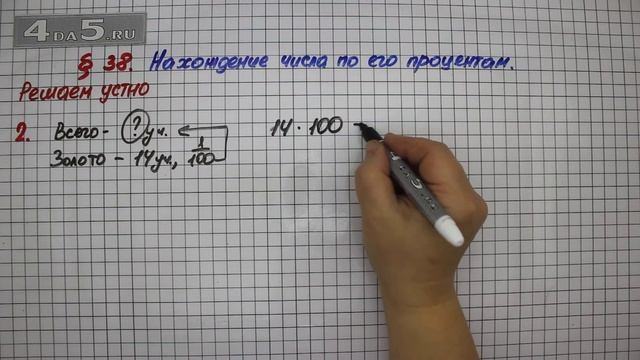 4DA5.RU
§ 38. Нахождение числа по его процентам.
Решаем устно
2. Всего - ? уч.
14 · 100 -
Золото - 14 уч, 1/100